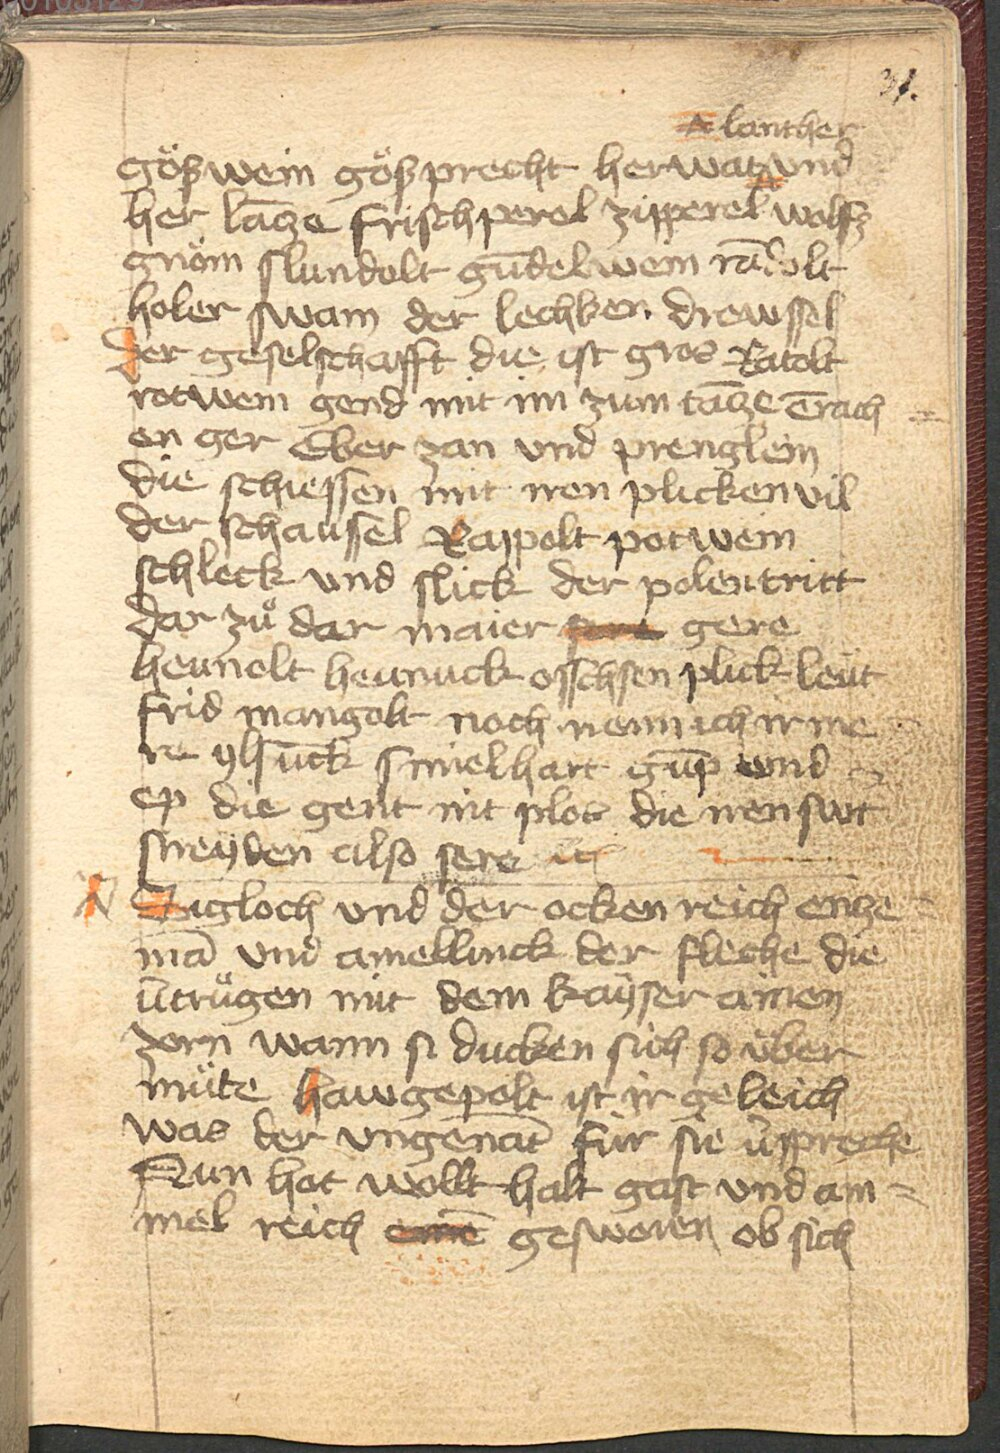 31.
lanther
gößwein gößprecht herwatz vnd
her lācze frischperel zipperel wolfz
gnöm slundolt gūdelwein rādolt
holer swam der lechken drewssel
der geselschafft die ist gros Ratolt
rotwein gend mit im zum tācze ērach
en ger Eber zan vnd prenglein
die schiessen mit iren plicken vil
der schaussel Rappolt potwein
schleck vnd slick der polentritt
dar zů dar maier gere
heunolt heunuck osschsen plick leüt
frid mangolt noch nenn ich ir me
re ylsūck smielhart gūp vnd
ep die gent nit plos die iren swt
sneyden also sere
Zigloch vnd der ocken reich encze
mā vnd amellinck der fleche die
ūtrůgen mit dem kayser ainen
zorn wann si ducken sich so über
müte hawgepolt ist ir geleich
was der vngenāt für sie ūspreche
Nun hot wollt halt gast vnd am
mel reich gesworen ob sich